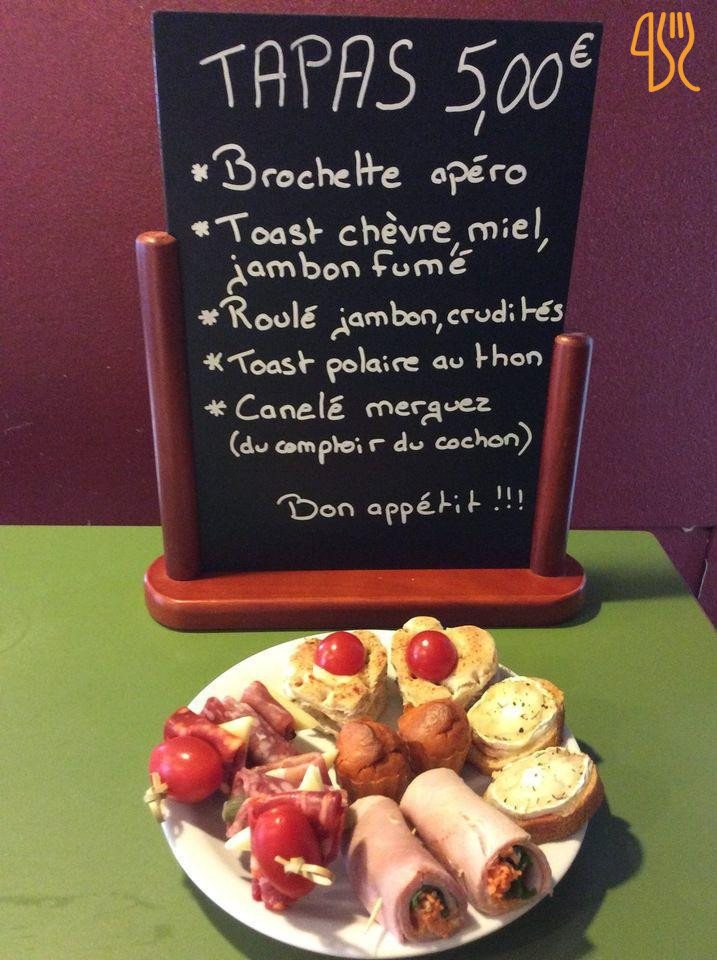 TAPAS 5,00€
* Brochette apéro
* Toast chèvre, miel,
jambon fumé
* Roulé jambon, crudités
* Toast polaire au thon
* Canelé merguez
(du comptoir du cochon)
Bon appétit !!!